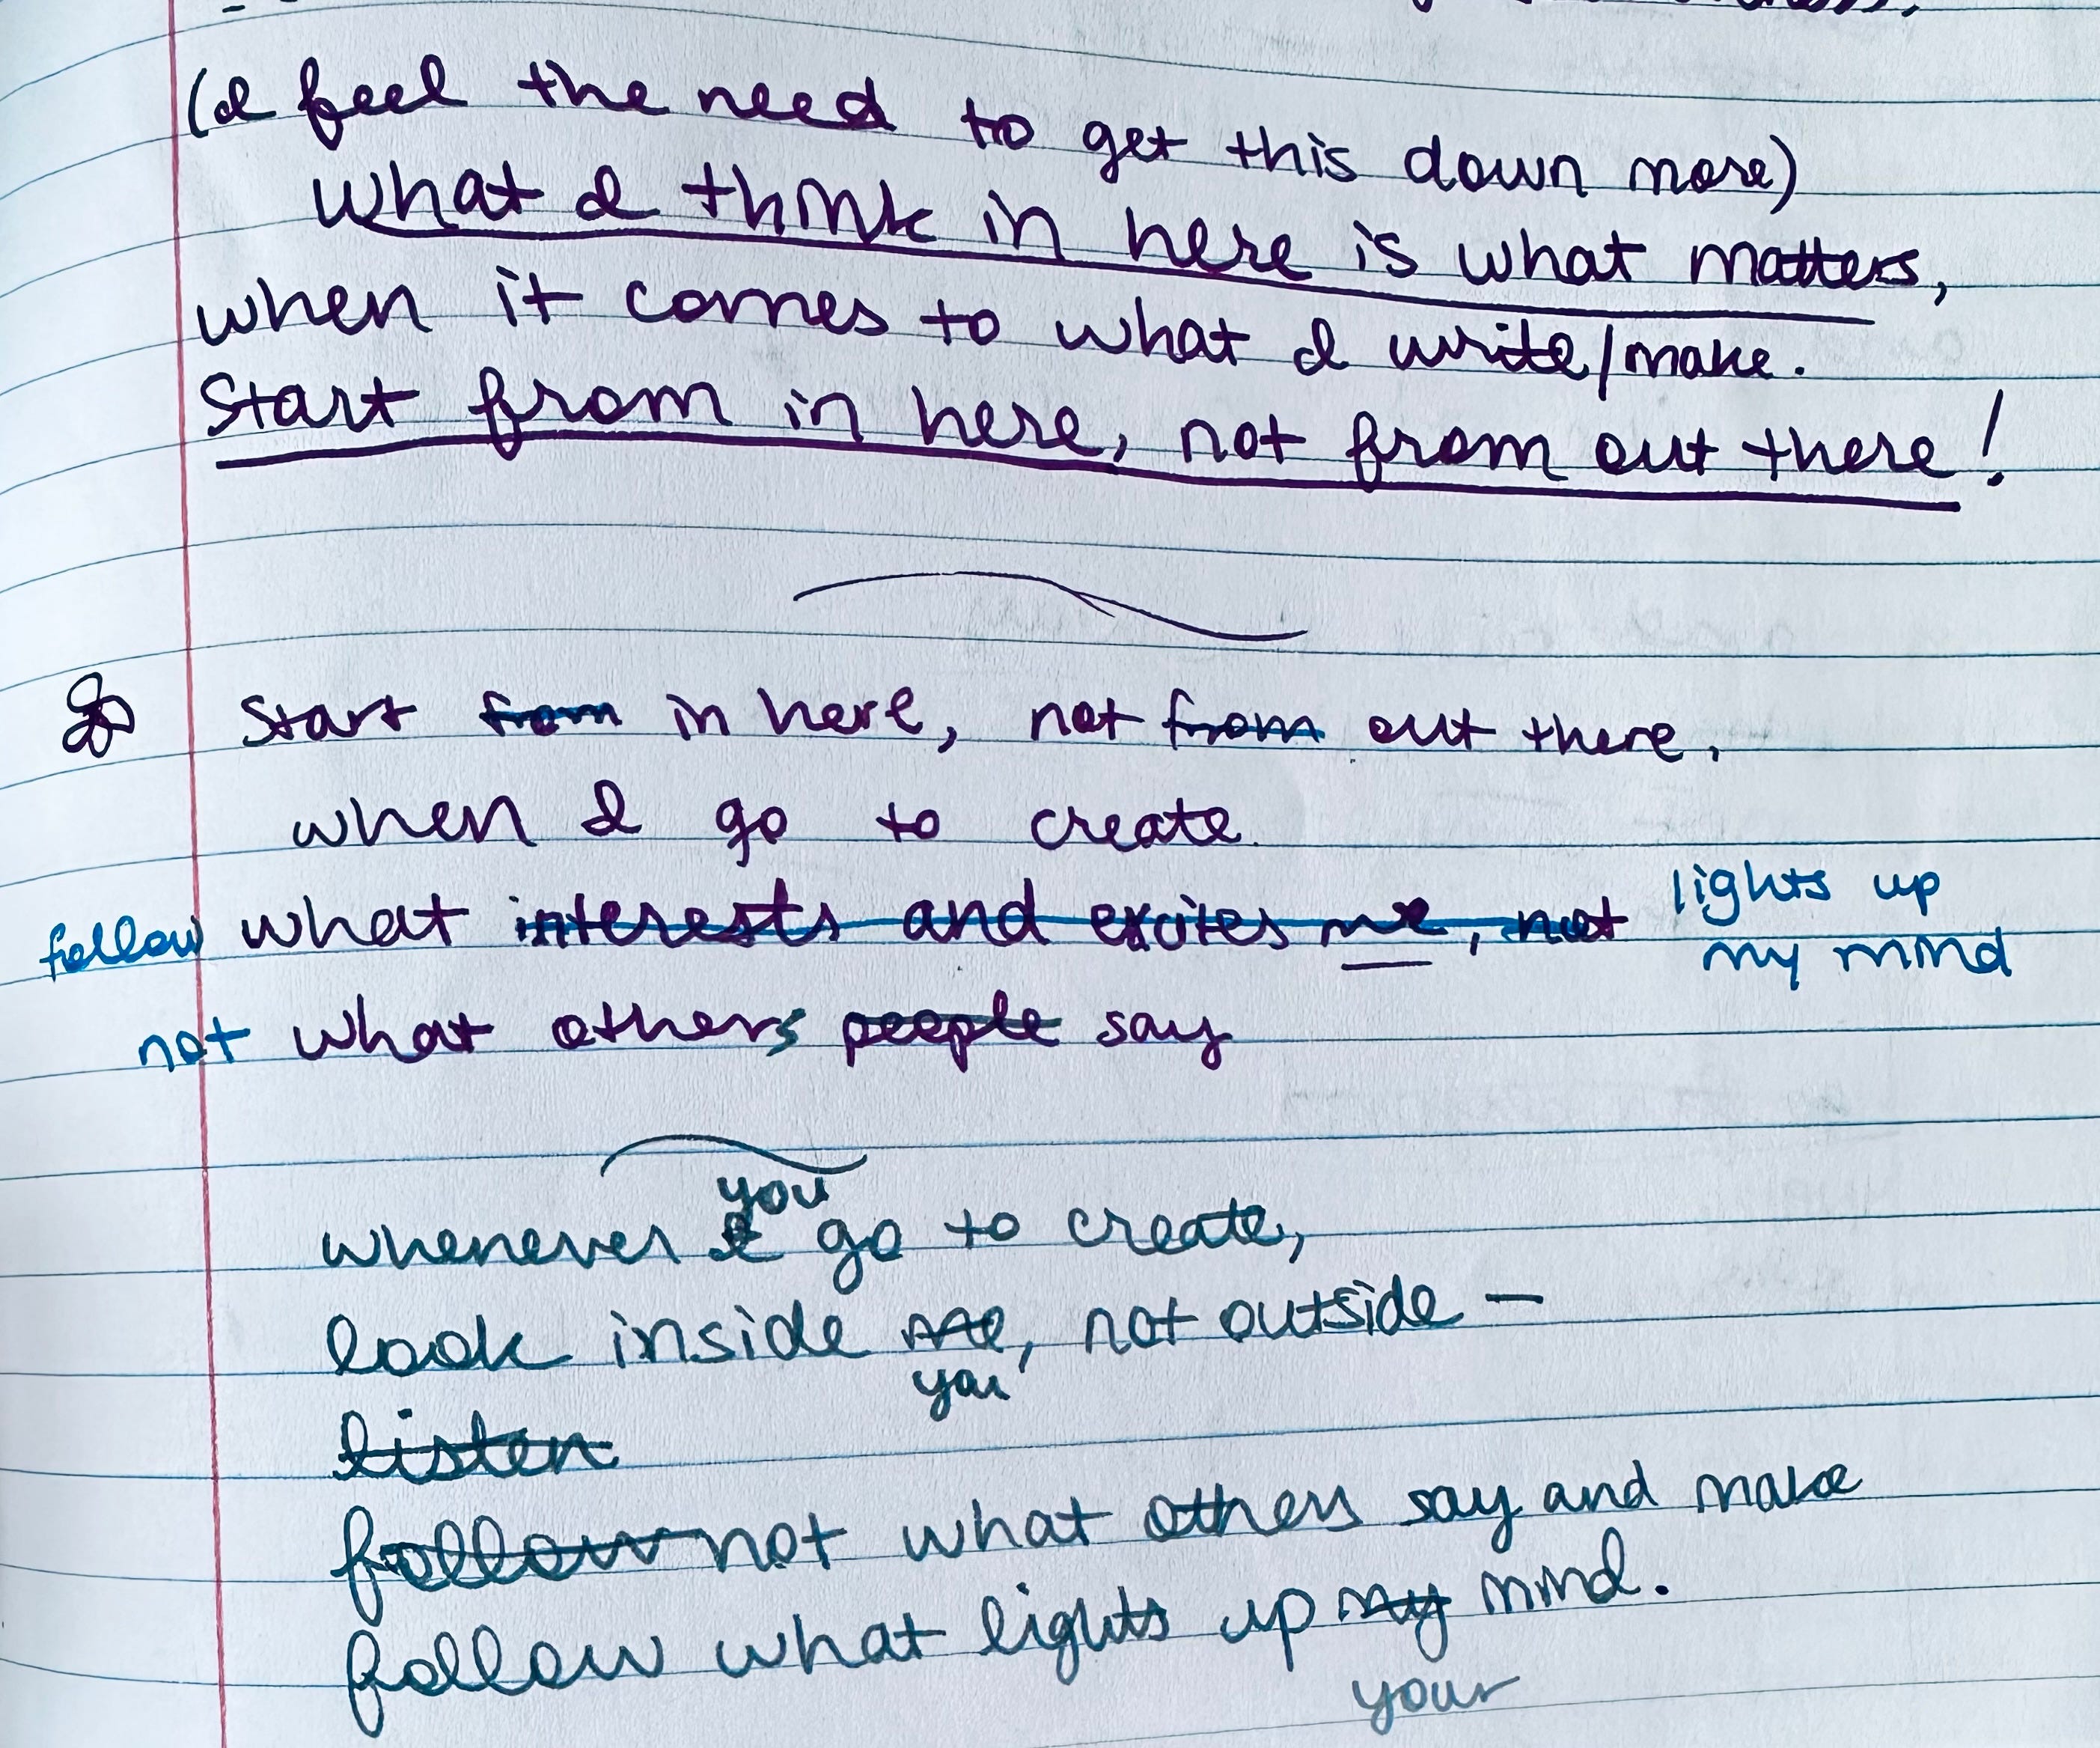 (I feel the need to get this down more)
what I think in here is what matters,
when it comes to what I write/make.
Start from in here, not from out there!
Start from in here, not from out there.
when I go to create.
follow what interests and excites me, not lights up
my mind
not what others people say
you
whenever I go to create,
look inside me, not outside —
you
listen
follow not what others say and make
follow what lights up my mind.
your